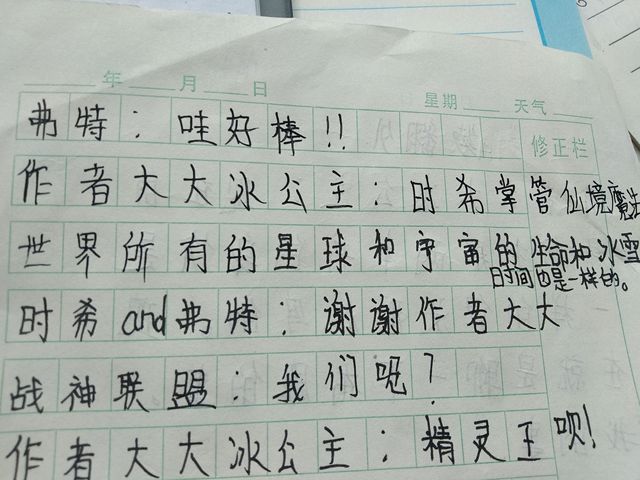 年 月 日 星期 天气
弗特：哇好棒!!
修正栏
作者大大冰公主：时希掌管仙境魔法
世界所有的星球和宇宙的生命和冰雪
时间也是一样的。
时希and弗特：谢谢作者大大
战神联盟：我们呢？
作者大大冰公主：精灵王呗!